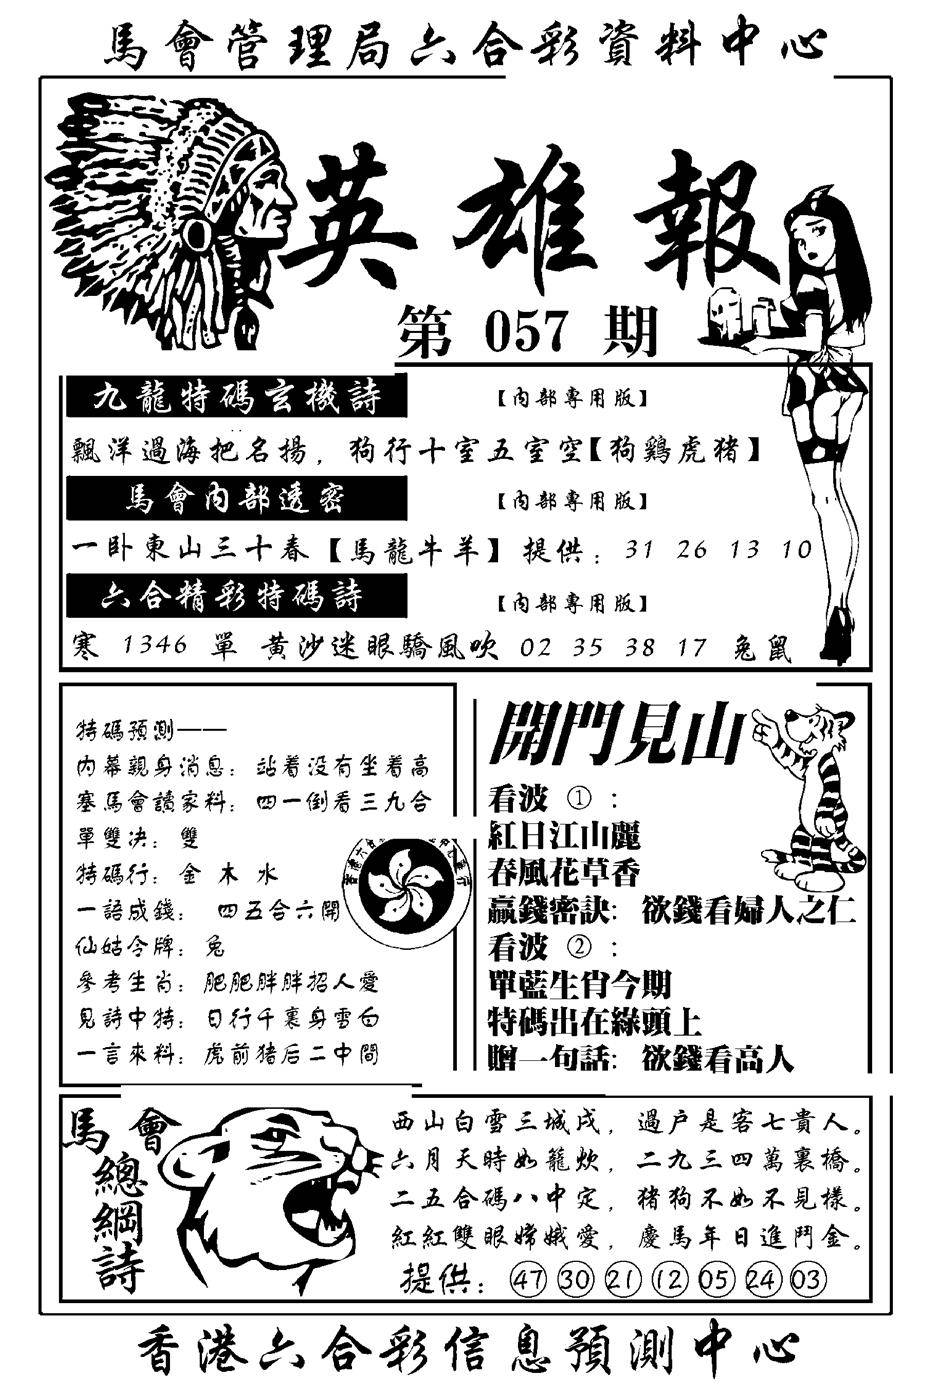 馬會管理局六合彩資料中心
英雄報
第 057 期
九龍特碼玄機詩
【內部專用版】
飄洋過海把名揚，狗行十室五室空【狗鷄虎猪】
馬會內部透密
【內部專用版】
一卧東山三十春【馬龍牛羊】提供：31 26 13 10
六合精彩特碼詩
【內部專用版】
寒 1346 單 黃沙迷眼驕風吹 02 35 38 17 兔鼠
特碼預測——
內幕親身消息：站着没有坐着高
塞馬會讀家料：四一倒看三九合
單雙决：雙
特碼行：金 木 水
一語成錢： 四五合六開
仙姑令牌：兔
參考生肖：肥肥胖胖招人愛
見詩中特：日行千裏身雪白
一言來料：虎前猪后二中間
開門見山
看波 ①：
紅日江山麗
春風花草香
贏錢密訣：欲錢看婦人之仁
看波 ②：
單藍生肖今期
特碼出在綠頭上
贈一句話：欲錢看高人
馬會
總綱詩
西山白雪三城戍，過户是客七貴人。
六月天時如籠炊，二九三四萬裏橋。
二五合碼八中定，猪狗不如不見樣。
紅紅雙眼嫦娥愛，慶馬年日進鬥金。
提供：㊼ ㉚ ㉑ ⑫ 05 ㉔ 03
香港六合彩信息預測中心